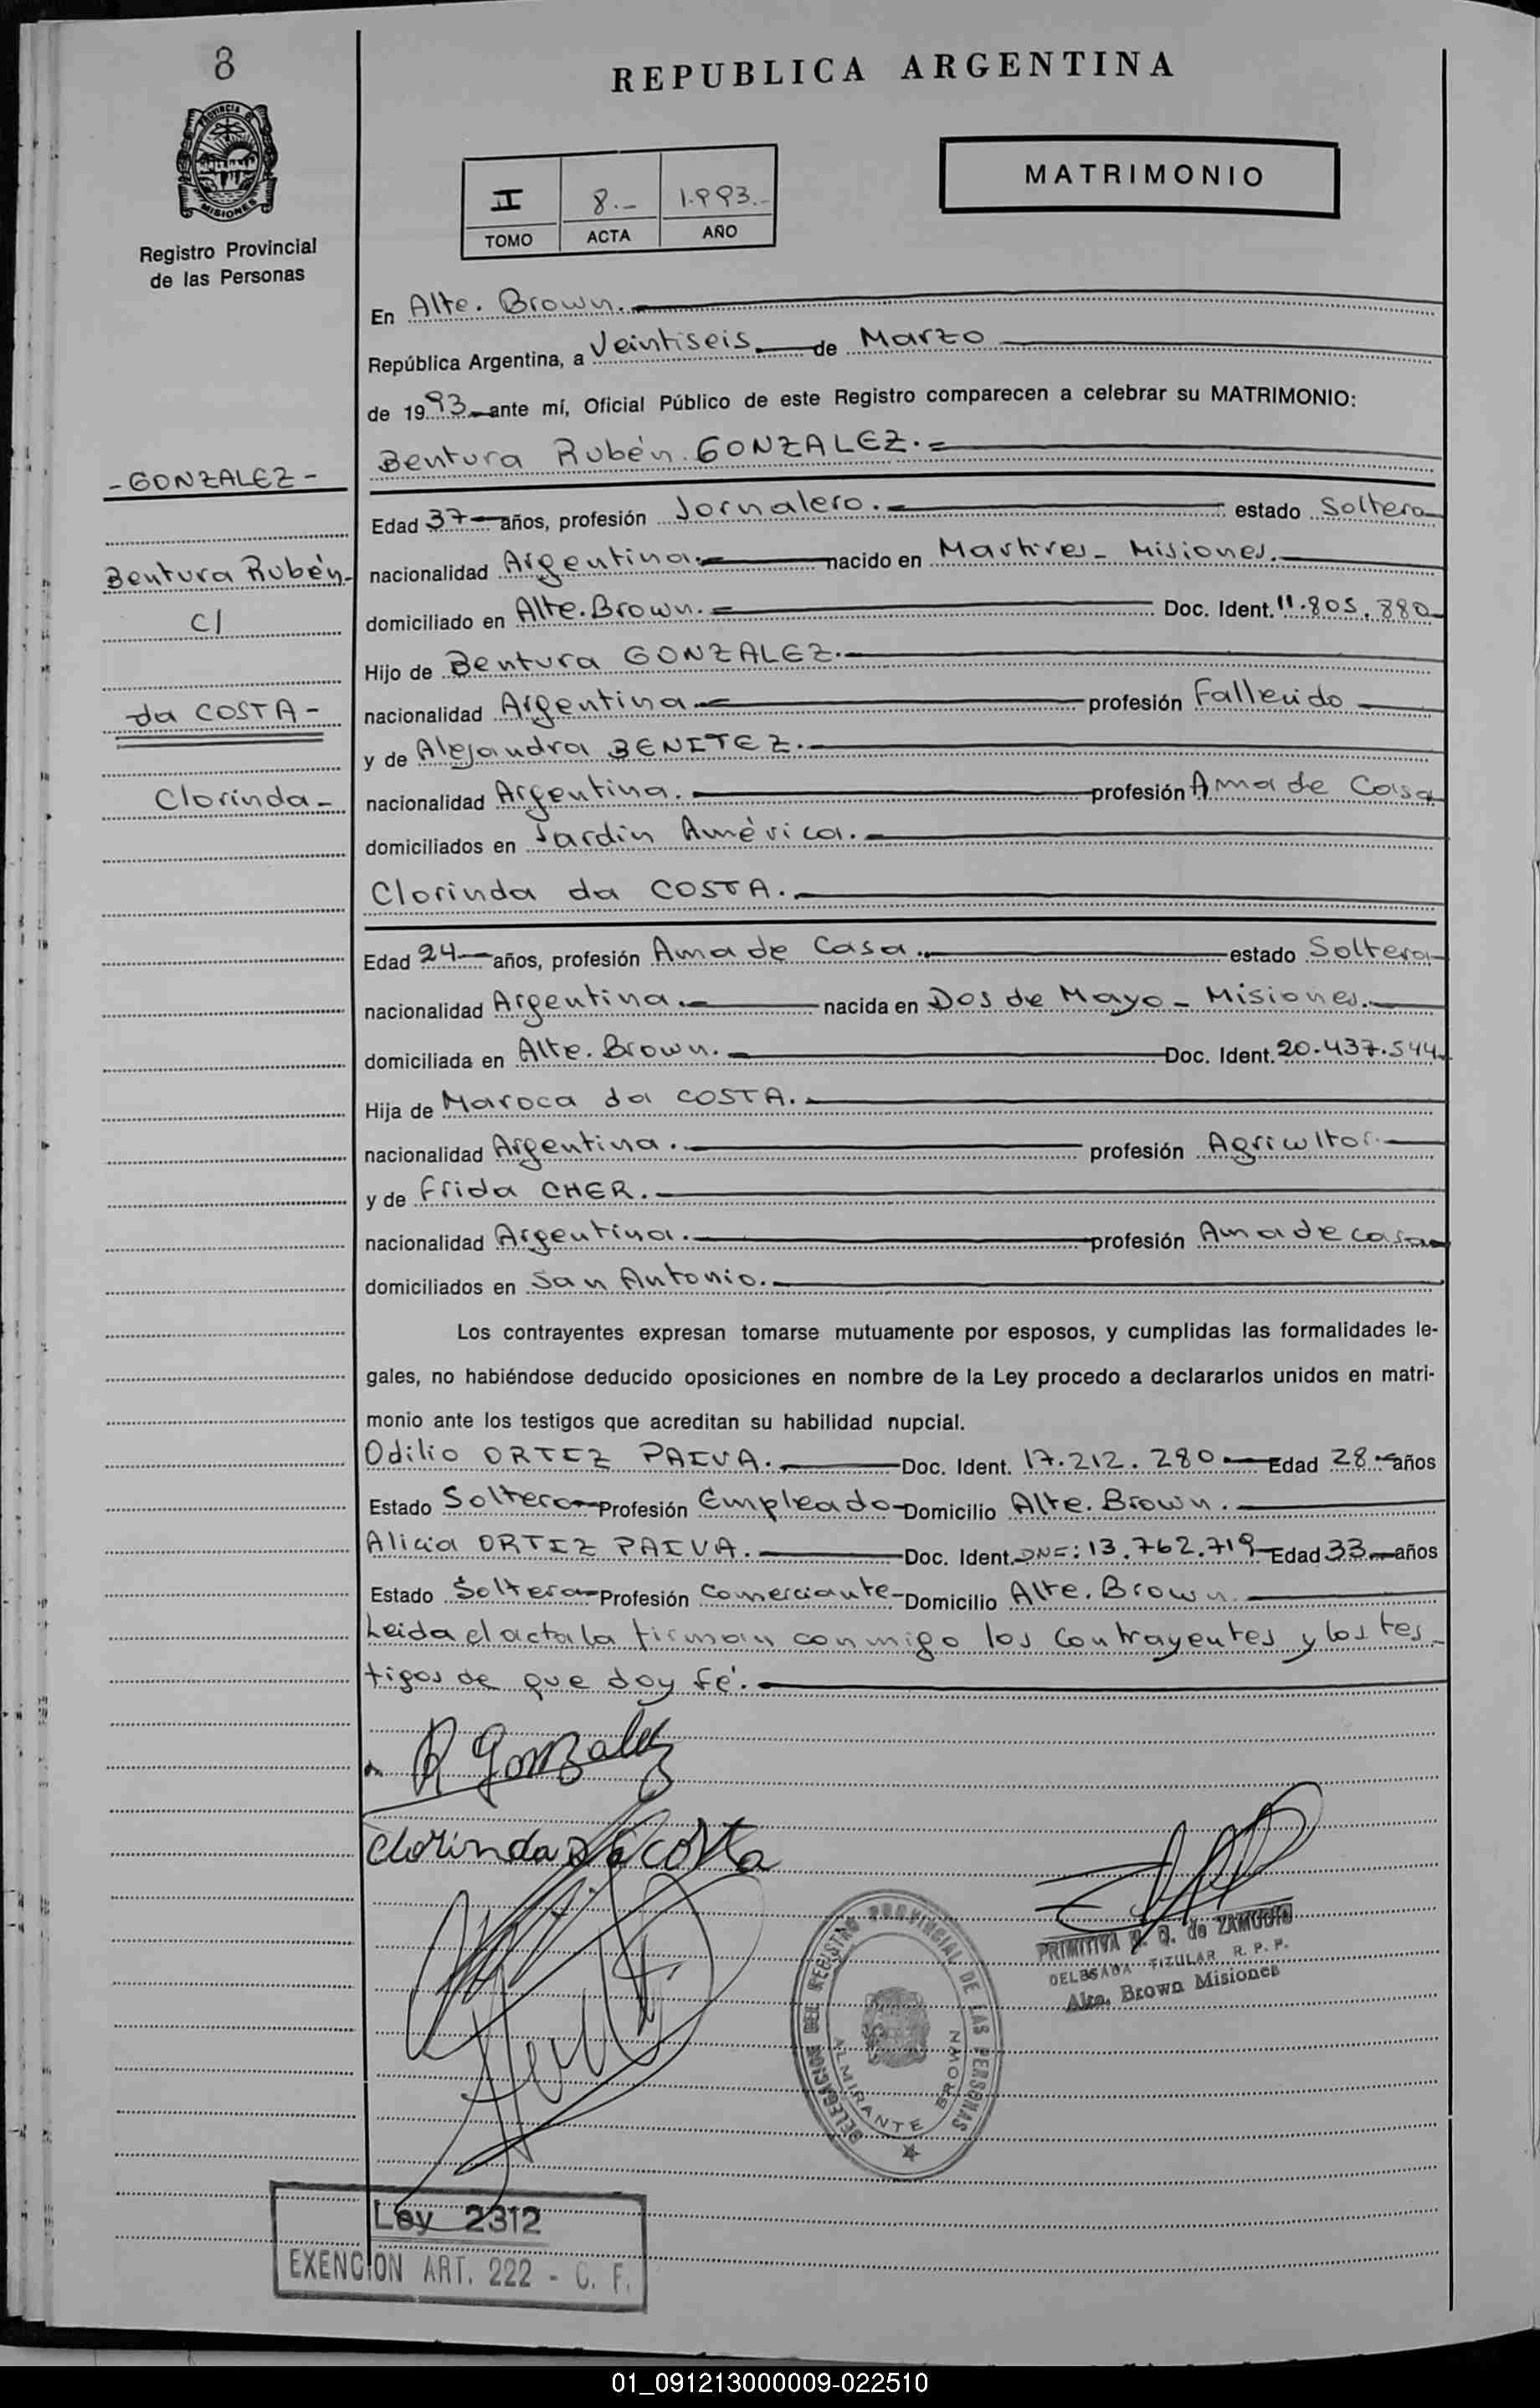 8
REPUBLICA ARGENTINA
PROVINCIA DE
MISIONES
Registro Provincial
de las Personas
II 8.- 1.993.-
TOMO ACTA AÑO
MATRIMONIO
En Alte. Brown.
República Argentina, a Veintiseis de Marzo
de 1993 ante mí, Oficial Público de este Registro comparecen a celebrar su MATRIMONIO:
Bentura Rubén GONZALEZ.=
- GONZALEZ -
Bentura Rubén-
C/
da COSTA -
Clorinda -
Edad 37 años, profesión Jornalero. estado Soltero
nacionalidad Argentina. nacido en Martires - Misiones.
domiciliado en Alte. Brown. = Doc. Ident. 11.805.880
Hijo de Bentura GONZALEZ.
nacionalidad Argentina profesión Fallecido
y de Alejandra BENITEZ.
nacionalidad Argentina. profesión Ama de Casa
domiciliados en Jardin América.
Clorinda da COSTA.
Edad 24 años, profesión Ama de Casa. estado Soltera
nacionalidad Argentina. nacida en Dos de Mayo - Misiones.
domiciliada en Alte. Brown. Doc. Ident. 20.437.544
Hija de Maroca da COSTA.
nacionalidad Argentina. profesión Agricultor.
y de Frida CHER.
nacionalidad Argentina. profesión Ama de casa
domiciliados en San Antonio.
Los contrayentes expresan tomarse mutuamente por esposos, y cumplidas las formalidades le-
gales, no habiéndose deducido oposiciones en nombre de la Ley procedo a declararlos unidos en matri-
monio ante los testigos que acreditan su habilidad nupcial.
Odilio ORTIZ PAIVA. Doc. Ident. 17.212.280 Edad 28 años
Estado Soltero Profesión Empleado Domicilio Alte. Brown.
Alicia ORTIZ PAIVA. Doc. Ident. DNI: 13.762.719 Edad 33 años
Estado Soltera Profesión Comerciante Domicilio Alte. Brown
Leida el acta la firman conmigo los contrayentes y los tes-
tigos de que doy fé.
R Gonzalez
Clorinda Da costa
PRIMITIVA Q. de ZAMUDIO
DELEGADA TITULAR R. P. P.
Alte. Brown Misiones
DELEGACION DEL REGISTRO PROVINCIAL DE LAS PERSONAS
ALMIRANTE BROWN
Ley 2312
EXENCION ART. 222 - C. F.
01_091213000009-022510